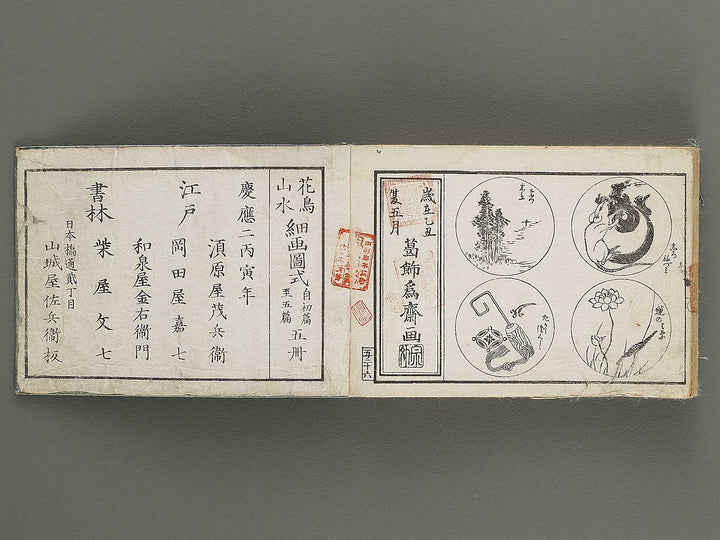 歳在乙丑
夏五月
葛飾爲齋画
五ノ二十六
花鳥
山水
細画圖式
自初篇
至五篇
五册
慶應二丙寅年
須原屋茂兵衞
江戸
岡田屋嘉七
和泉屋金右衞門
書林
柴屋文七
日本橋通貳丁目
山城屋佐兵衞板